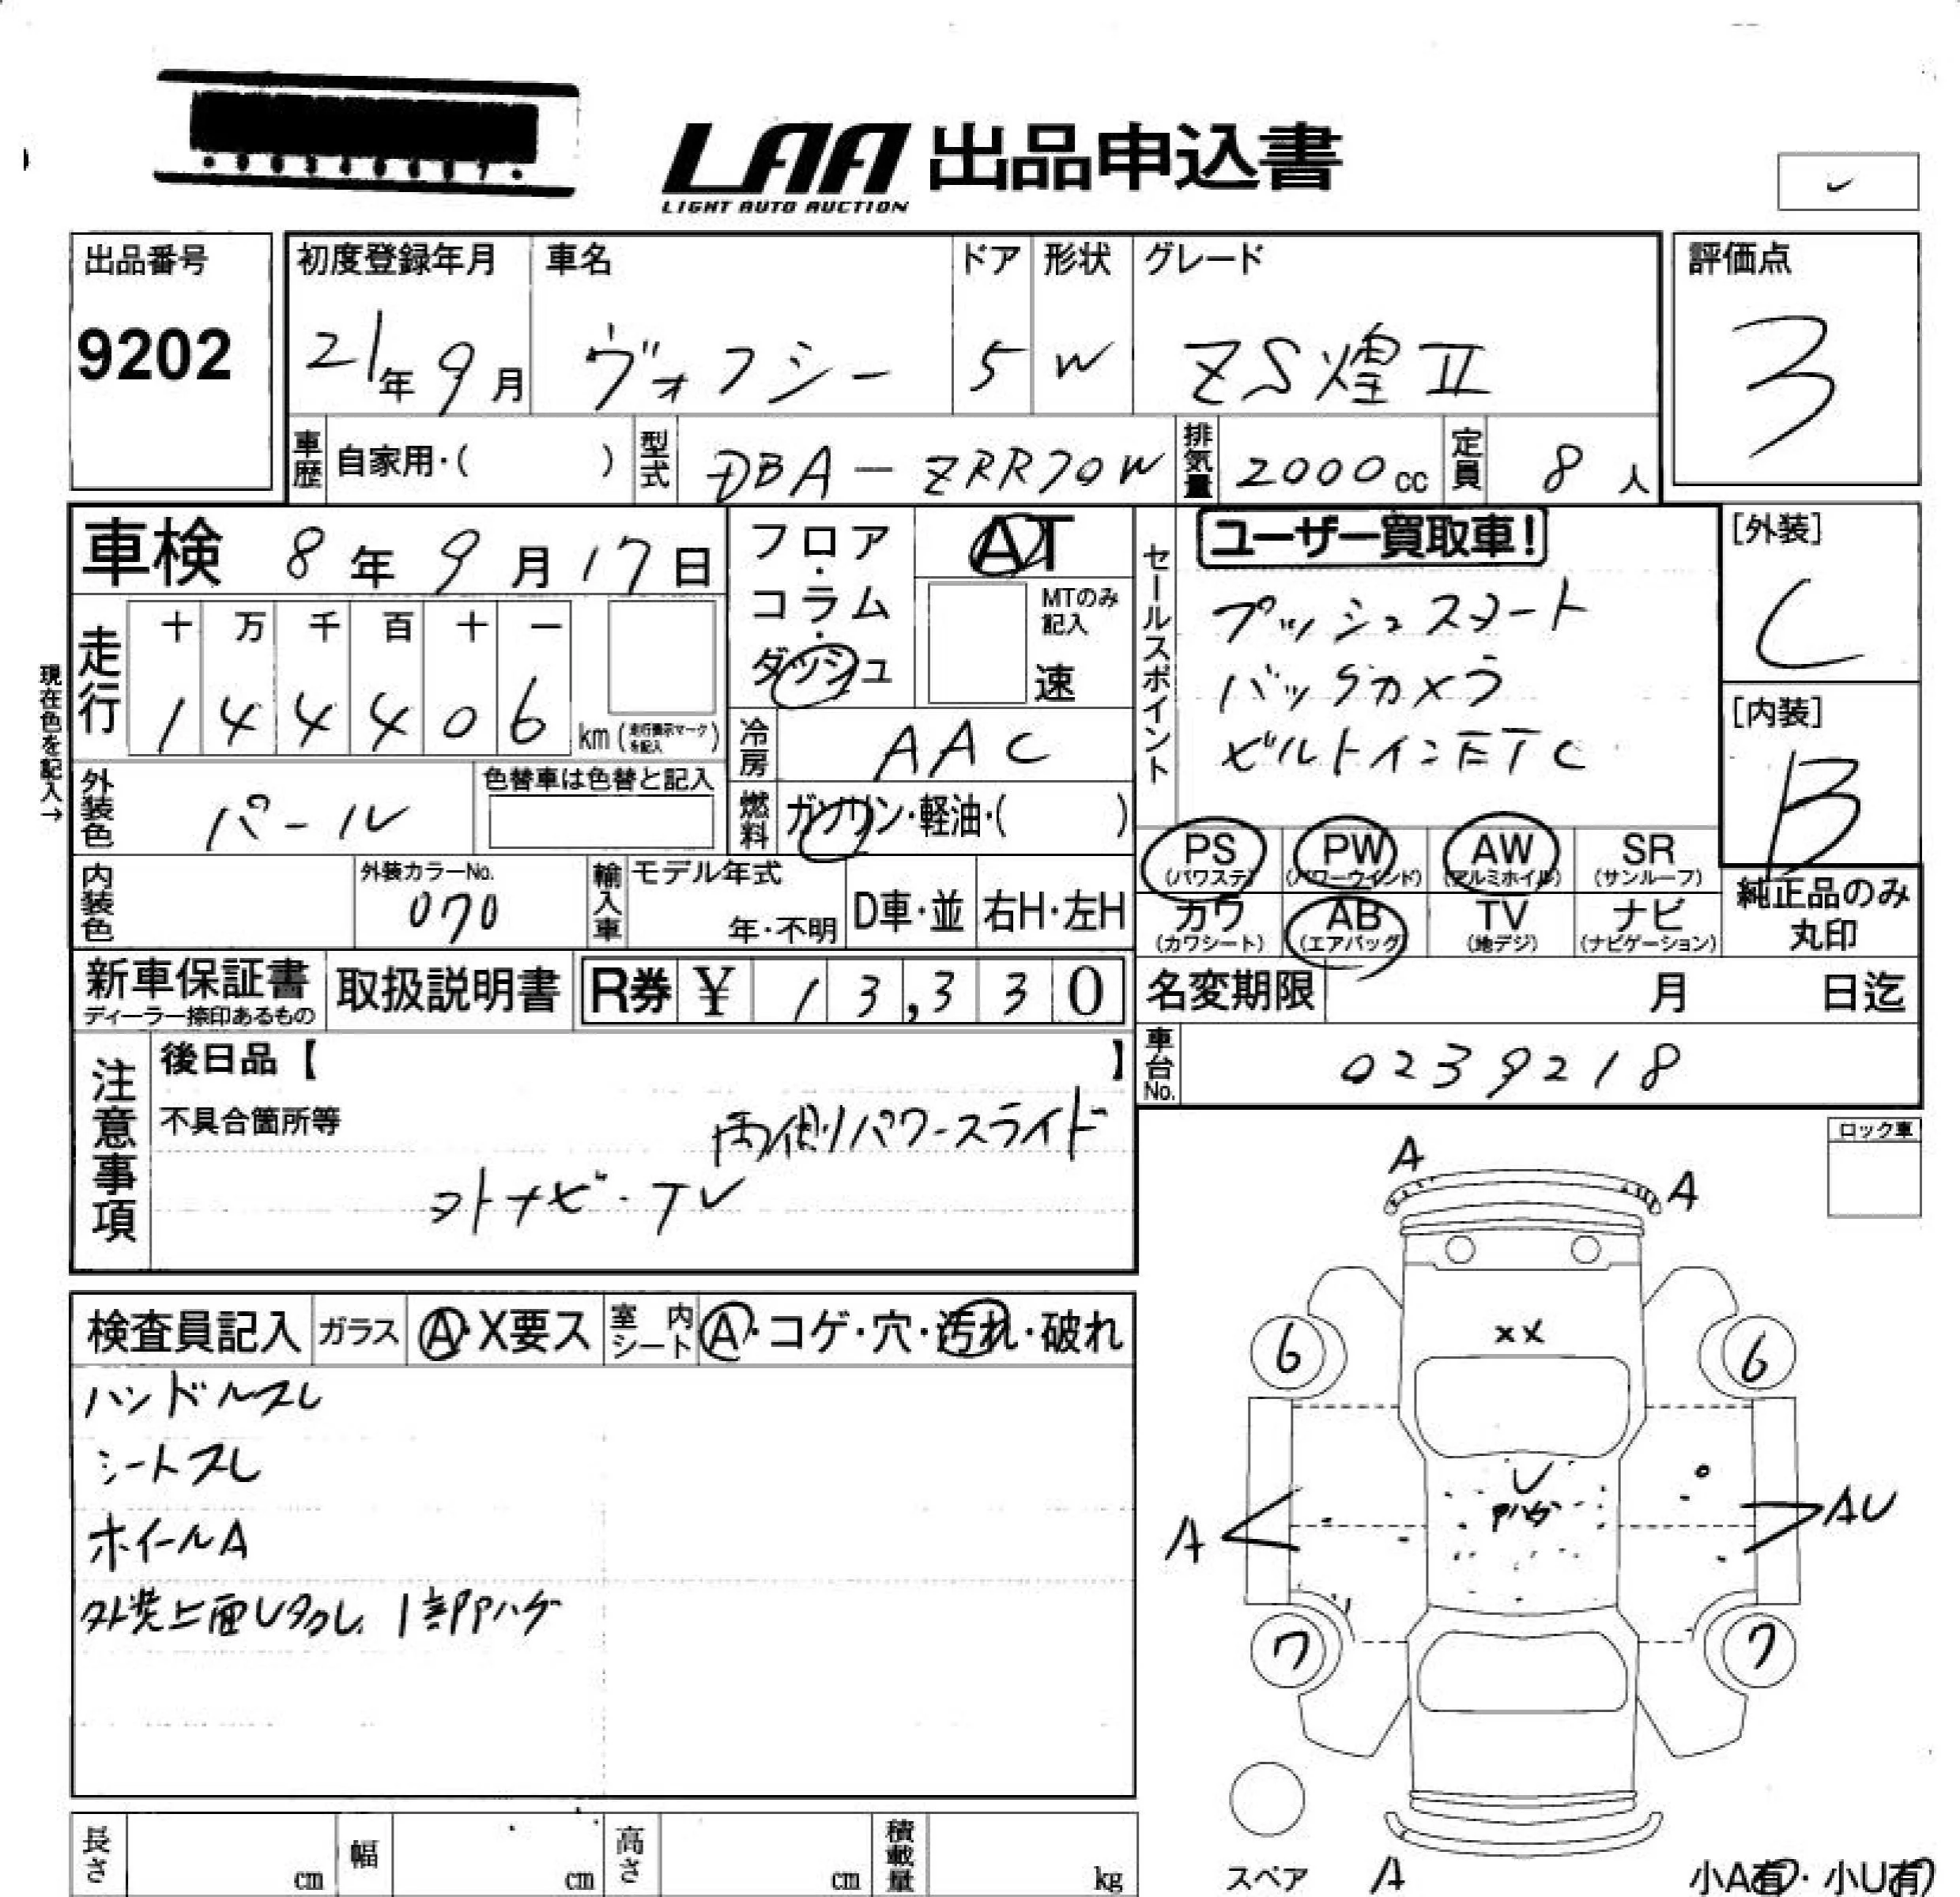 LAA 出品申込書
LIGHT AUTO AUCTION
出品番号
9202
初度登録年月 車名 ドア 形状 グレード
21年9月 ヴォクシー 5 W ZS煌II
評価点
3
車歴 自家用・( ) 型式 DBA-ZRR70W 排気量 2000cc 定員 8人
車検 8年9月17日
現在色を記入→
走行 十 万 千 百 十 一
1 4 4 4 0 6 km(走行表示マークを記入)
フロア・コラム・ダッシュ
AT
MTのみ記入
速
冷房 AAC
燃料 ガソリン・軽油・( )
セールスポイント
ユーザー買取車!
プッシュスタート
バックカメラ
ビルトインETC
[外装]
C
[内装]
B
外装色 パール 色替車は色替と記入
内装色 外装カラーNo. 070
輸入車 モデル年式 年・不明 D車・並 右H・左H
PS(パワステ) PW(パワーウインド) AW(アルミホイル) SR(サンルーフ)
カワ(カワシート) AB(エアバッグ) TV(地デジ) ナビ(ナビゲーション)
純正品のみ丸印
新車保証書 ディーラー捺印あるもの 取扱説明書 R券 ¥ 13,330
名変期限 月 日迄
車台No. 0239218
注意事項
後日品【 】
不具合箇所等
両側パワースライド
外ナビ・TV
ロック車
検査員記入 ガラス A・X要ス 室内シート A・コゲ・穴・汚れ・破れ
ハンドルスレ
シートスレ
ホイールA
外装上面U多数し 1部Pハゲ
A
A
XX
6 6
U
Pハゲ
A AU
7 7
スペア A 小A有・小U有
長さ cm 幅 cm 高さ cm 積載量 kg